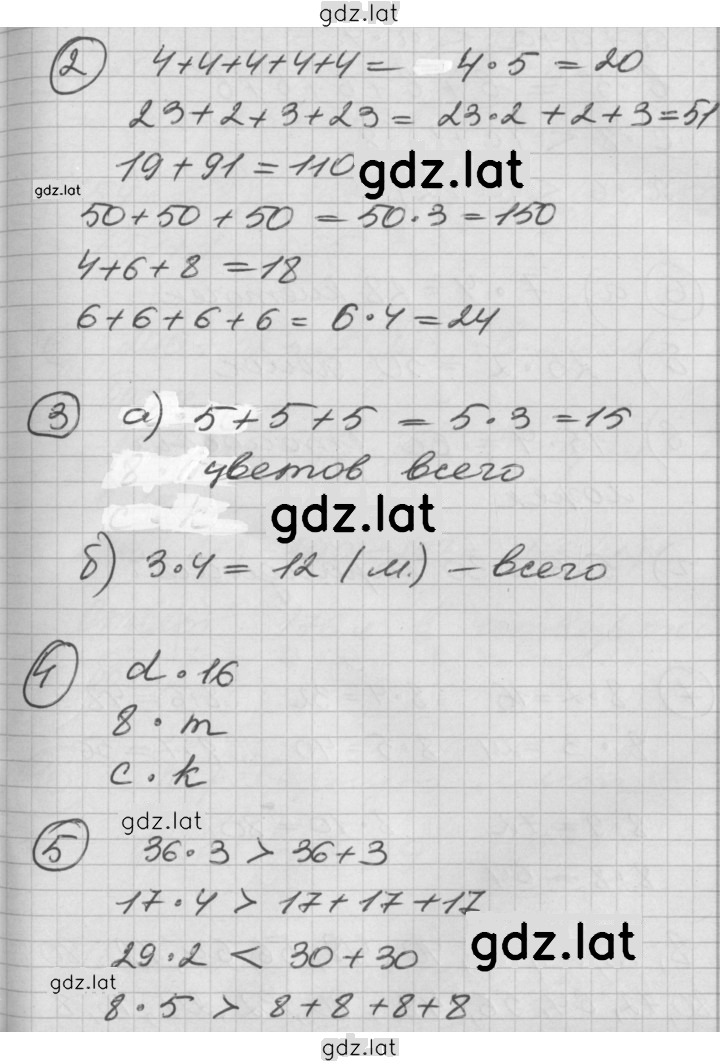 gdz.lat
2 4+4+4+4+4= 4·5 = 20
23+2+3+23= 23·2+2+3=51
19+91=110
gdz.lat
gdz.lat
50+50+50 = 50·3=150
4+6+8 =18
6+6+6+6= 6·4=24
3 а) 5+5+5 = 5·3 =15
цветов всего
gdz.lat
б) 3·4= 12 (м.) – всего
4 d·16
8·m
c·k
gdz.lat
5 36·3 > 36+3
17·4 > 17+17+17
29·2 < 30+30
gdz.lat
gdz.lat
8·5 > 8+8+8+8
gdz.lat